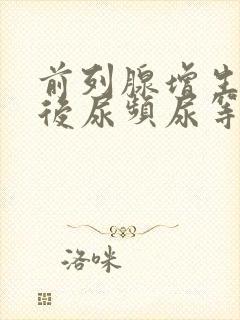 前列腺增生
後尿頻尿等
洛咪